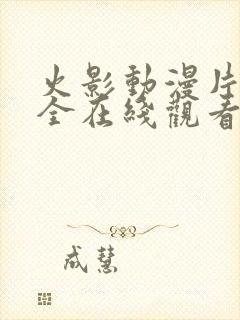 火影動漫片
全在綫觀看
成慧